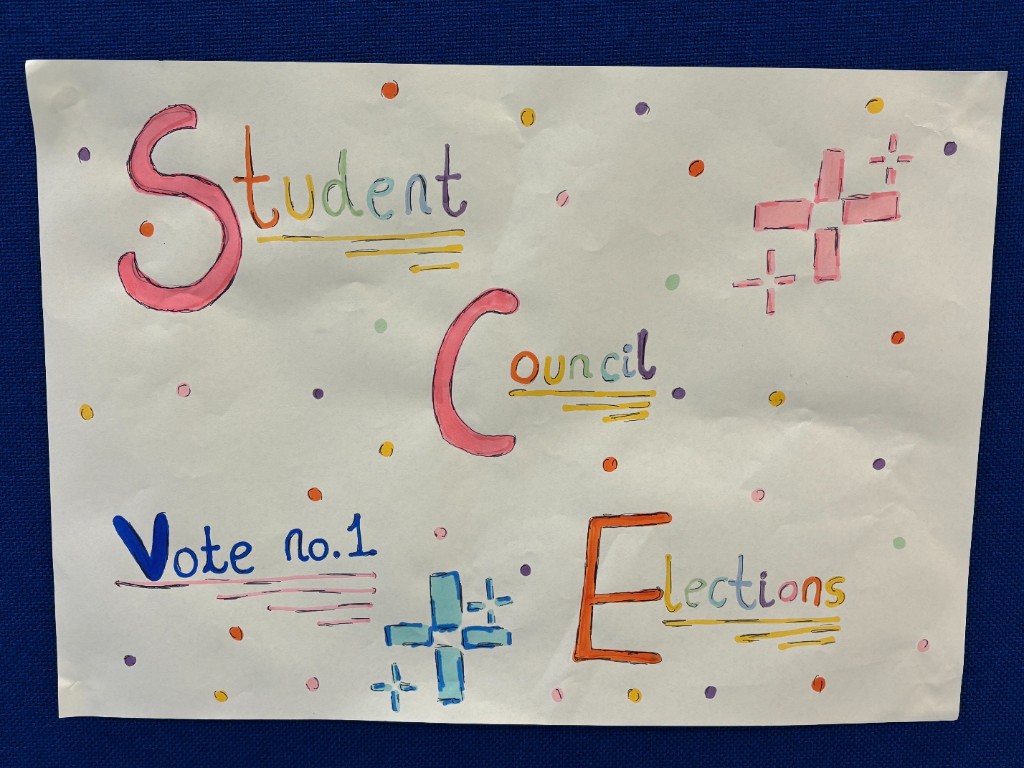 Student
Council
Vote no.1
Elections